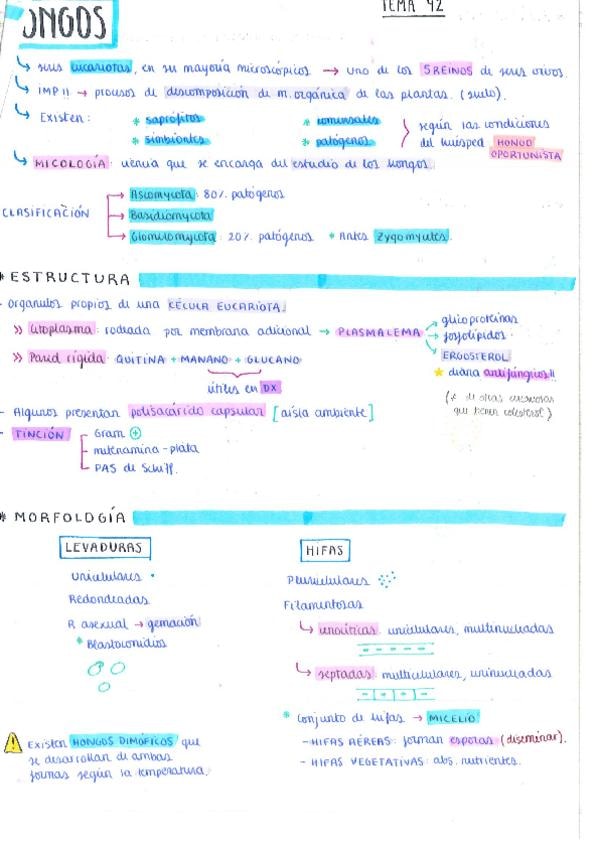 TEMA 42
ONGOS
seres eucariotas, en su mayoría microscópicos → uno de los 5 REINOS de seres vivos.
IMP!! → procesos de descomposición de m. orgánica de las plantas. (suelo).
Existen: * saprófitos * comensales según las condiciones
* simbiontes * patógenos del huésped HONGO
OPORTUNISTA
MICOLOGÍA: ciencia que se encarga del estudio de los hongos.
CLASIFICACIÓN → Ascomycota: 80% patógenos
→ Basidiomycota
→ Glomeromycota: 20% patógenos * Antes Zygomycetes.
* ESTRUCTURA
- Orgánulos propios de una CÉLULA EUCARIOTA.
>> Citoplasma: rodeada por membrana adicional → PLASMALEMA → glicoproteínas
→ fosfolípidos
→ ERGOSTEROL
diana antifúngicos!!
(≠ de otras eucariotas
que tienen colesterol)
>> Pared rígida: QUITINA + MANANO + GLUCANO
útiles en DX
- Algunos presentan polisacárido capsular [aísla ambiente]
- TINCIÓN Gram ⊕
metenamina-plata
PAS de Schiff.
* MORFOLOGÍA
LEVADURAS
Unicelulares
Redondeadas
R asexual → gemación
* Blastoconidios
Existen HONGOS DIMÓFICOS que
se desarrollan de ambas
formas según la temperatura.
HIFAS
Pluricelulares
Filamentosas
cenocíticas: unicelulares, multinucleadas
septadas: multicelulares, uninucleadas
* Conjunto de hifas → MICELIO
- HIFAS AÉREAS: forman esporas (diseminar).
- HIFAS VEGETATIVAS: abs. nutrientes.